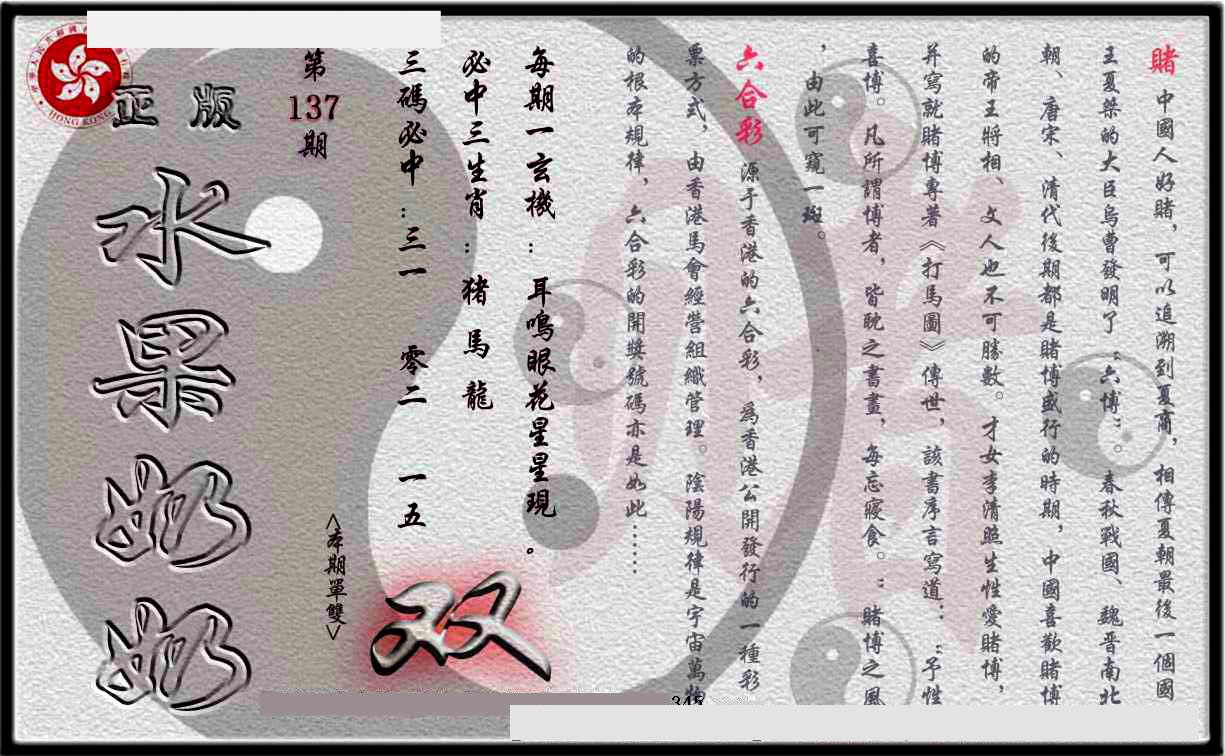 賭 中國人好賭，可以追溯到夏商，相傳夏朝最後一個國
王夏桀的大臣烏曹發明了“六博”。春秋戰國、魏晋南北
朝、唐宋、清代後期都是賭博盛行的時期，中國喜歡賭博
的帝王將相、文人也不可勝數。才女李清照生性愛賭博，
并寫就賭博專著《打馬圖》傳世，該書序言寫道：“予性
喜博。凡所謂博者，皆耽之書畫，每忘寢食。”賭博之風
，由此可窺一斑。
六合彩 源于香港的六合彩，爲香港公開發行的一種彩
票方式，由香港馬會經營組織管理。陰陽規律是宇宙萬物
的根本規律，六合彩的開獎號碼亦是如此……
每期一玄機：耳鳴眼花星星現。
必中三生肖：猪 馬 龍
三碼必中：三一 零二 一五
<本期單雙>
双
第
137
期
正版
水果奶奶
HONG KONG
345